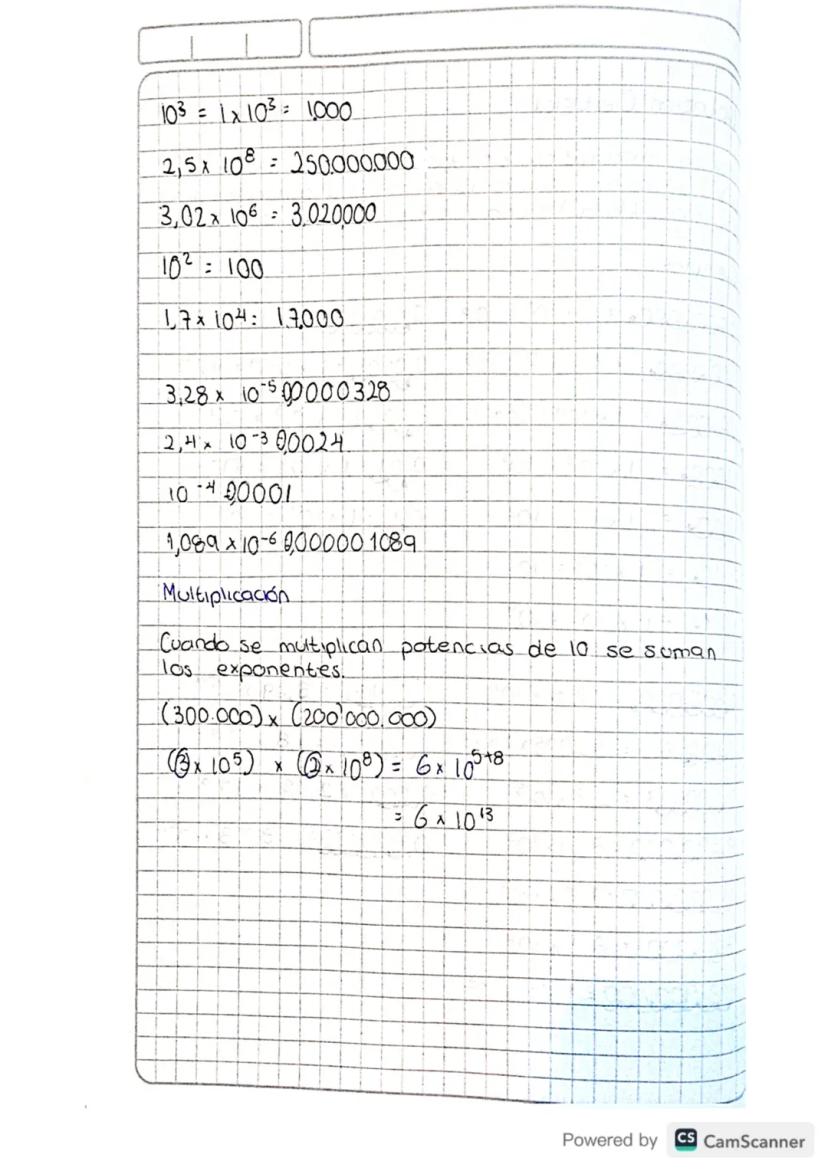 10³ = 1 x 10³ = 1.000
2,5 x 10⁸ = 250.000.000
3,02 x 10⁶ = 3.020.000
10² = 100
1,7 x 10⁴ = 17.000
3,28 x 10⁻⁵ 0,0000328
2,4 x 10⁻³ 0,0024
10⁻⁴ 0,0001
1,089 x 10⁻⁶ 0,000001089
Multiplicación
Cuando se multiplican potencias de 10 se suman
los exponentes.
(300.000) x (200'000.000)
(3 x 10⁵) x (2 x 10⁸) = 6 x 10⁵⁺⁸
= 6 x 10¹³
Powered by CS CamScanner